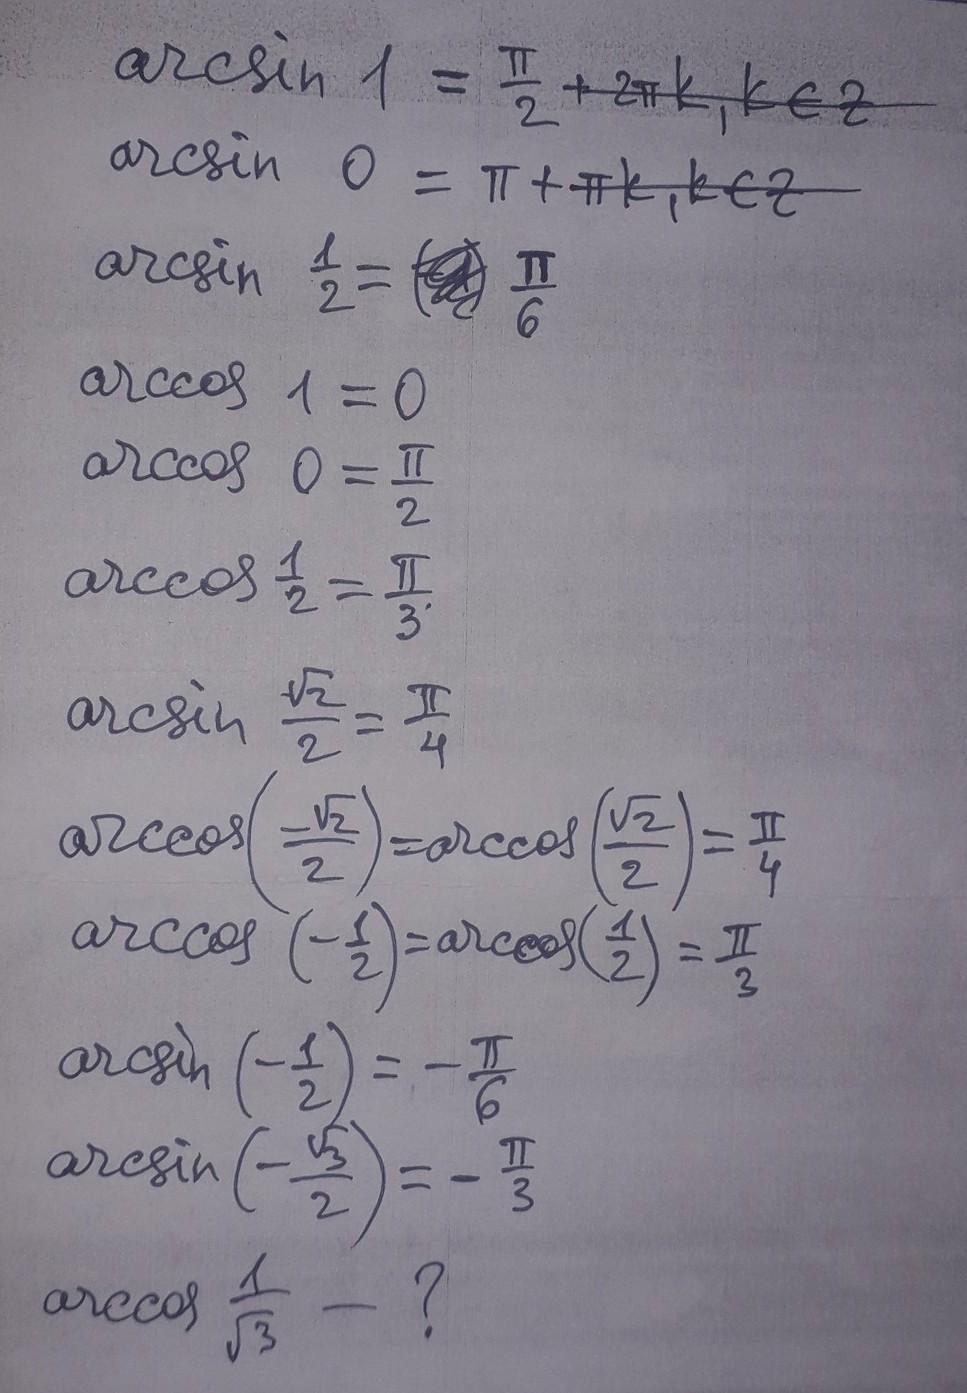 arcsin 1 = π/2 + 2πk, k ∈ Z
arcsin 0 = π + πk, k ∈ Z
arcsin 1/2 = π/6
arccos 1 = 0
arccos 0 = π/2
arccos 1/2 = π/3
arcsin √2/2 = π/4
arccos(-√2/2) = arccos(√2/2) = π/4
arccos (-1/2) = arccos(1/2) = π/3
arcsin (-1/2) = - π/6
arcsin (-√3/2) = - π/3
arccos 1/√3 — ?